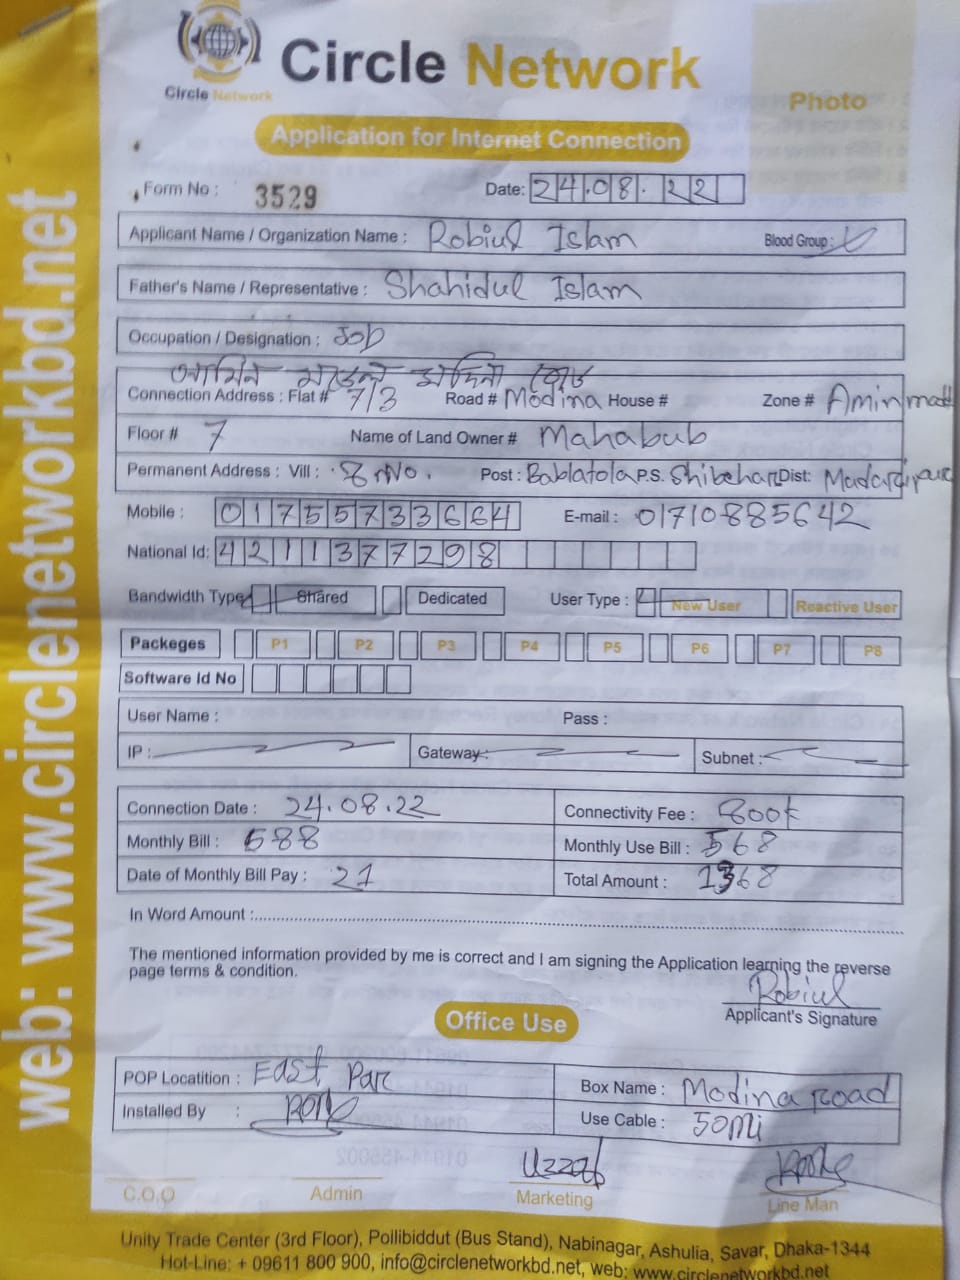 Circle Network
Circle Network
Photo
Application for Internet Connection
Form No : 3529 Date: 24.08.22
Applicant Name / Organization Name : Robiul Islam Blood Group :
Father's Name / Representative : Shahidul Islam
Occupation / Designation : Job
Connection Address : Flat # 7/3 Road # Modina House # Zone # Amin
Floor # 7 Name of Land Owner # Mahabub
Permanent Address : Vill : Post : Bablatola P.S. Shibchar Dist:
Mobile : 01755733664 E-mail : 01710885642
National Id: 4211377298
Bandwidth Type Shared Dedicated User Type : New User Reactive User
Packeges P1 P2 P3 P4 P5 P6 P7 P8
Software Id No
User Name : Pass :
IP : Gateway : Subnet :
Connection Date : 24.08.22 Connectivity Fee : 800t
Monthly Bill : 588 Monthly Use Bill : 568
Date of Monthly Bill Pay : 21 Total Amount : 1368
In Word Amount :
The mentioned information provided by me is correct and I am signing the Application learning the reverse
page terms & condition.
Robiul
Applicant's Signature
Office Use
POP Locatition : East Par Box Name : Modina road
Installed By : Use Cable : 50mi
C.O.O Admin Marketing Line Man
Unity Trade Center (3rd Floor), Pollibiddut (Bus Stand), Nabinagar, Ashulia, Savar, Dhaka-1344
Hot-Line: + 09611 800 900, info@circlenetworkbd.net, web: www.circlenetworkbd.net
web: www.circlenetworkbd.net